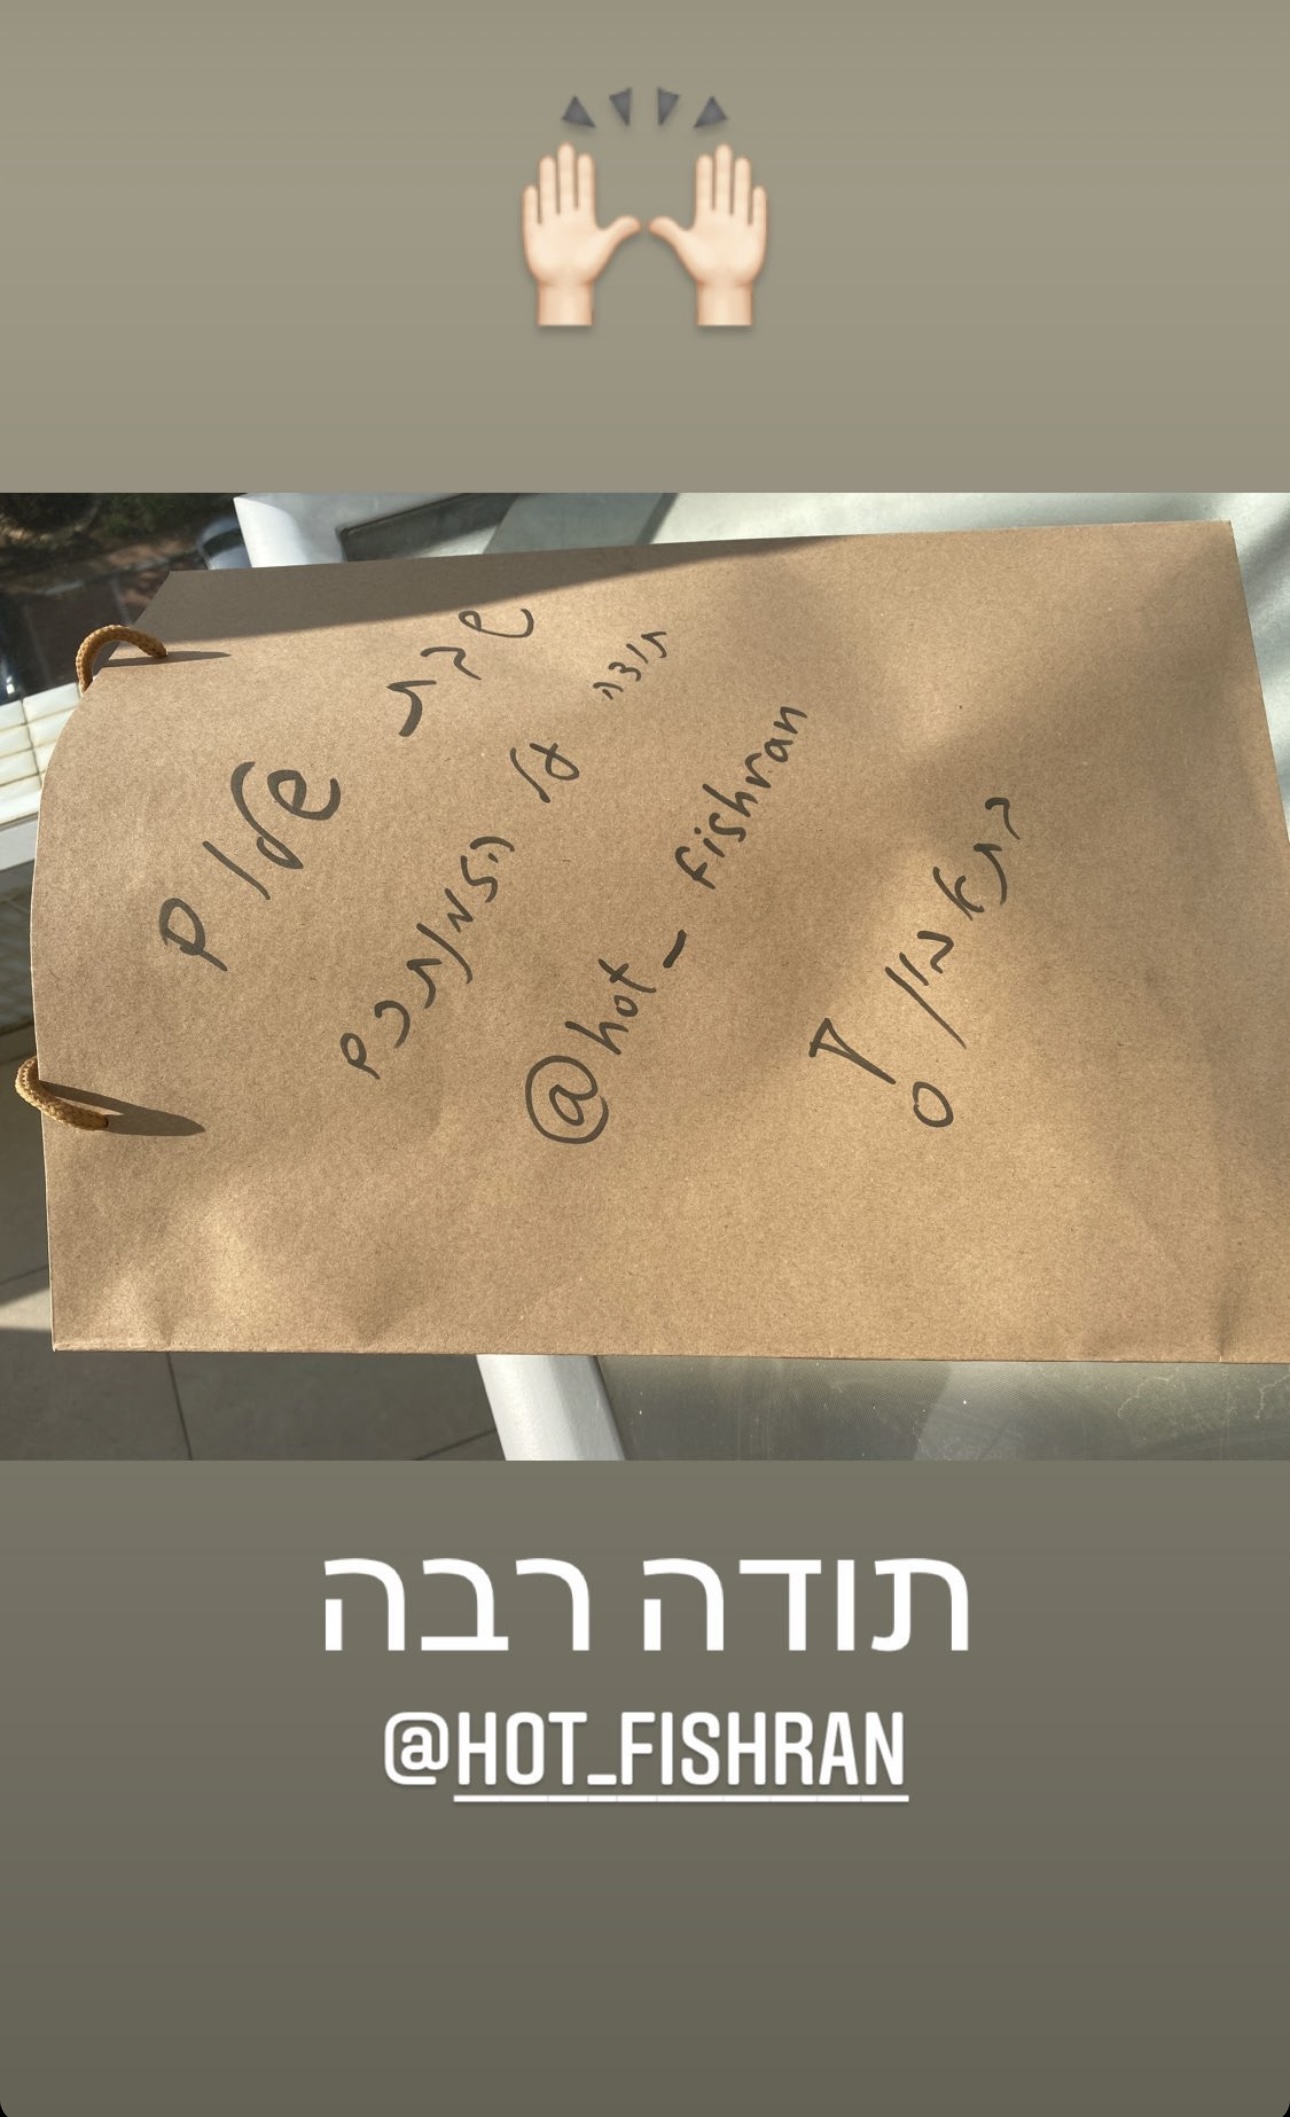 שבת שלום
תודה על הזמנתכם
@hot_fishran
בתאבון!
תודה רבה
@HOT_FISHRAN